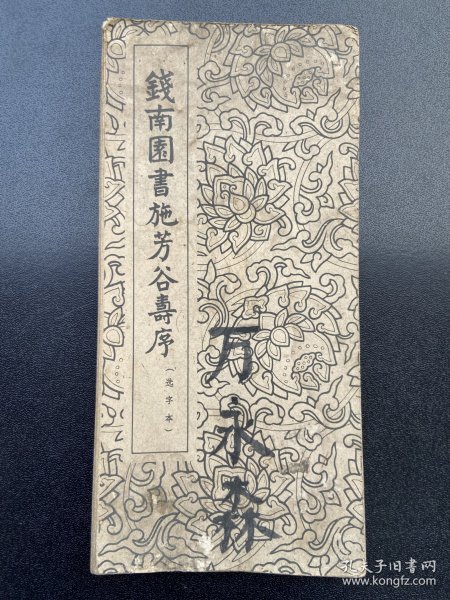 錢南園書施芳谷壽序
（选字本）
万永森
孔夫子旧书网
www.kongfz.com